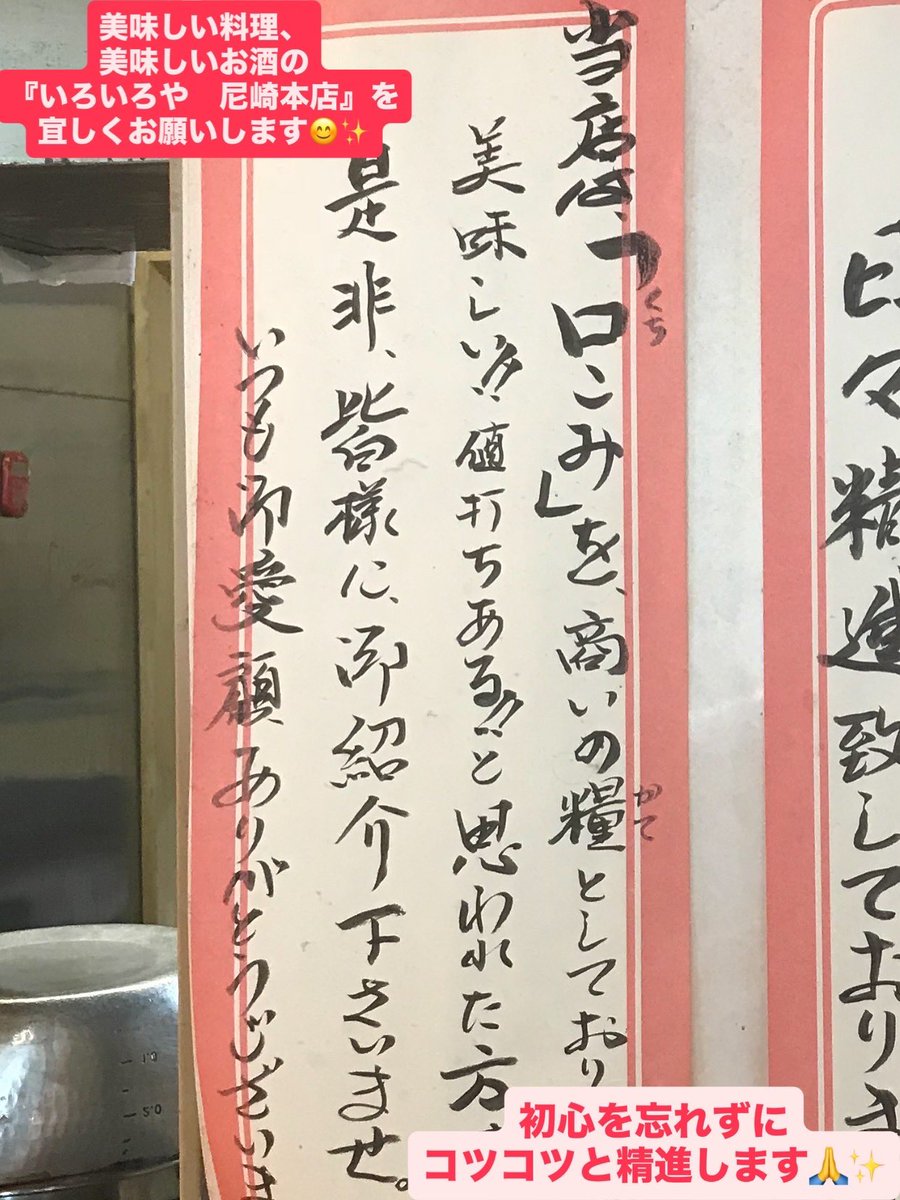 美味しい料理、
美味しいお酒の
『いろいろや　尼崎本店』を
宜しくお願いします😊✨
々精進致しており
当店は、「口こみ」を、商いの糧としており
くち
かて
美味しい!!値打ちある!!と思われた方、
是非、皆様に、御紹介下さいませ。
いつも御愛顧ありがとうございま
初心を忘れずに
コツコツと精進します🙏✨
10
5.0